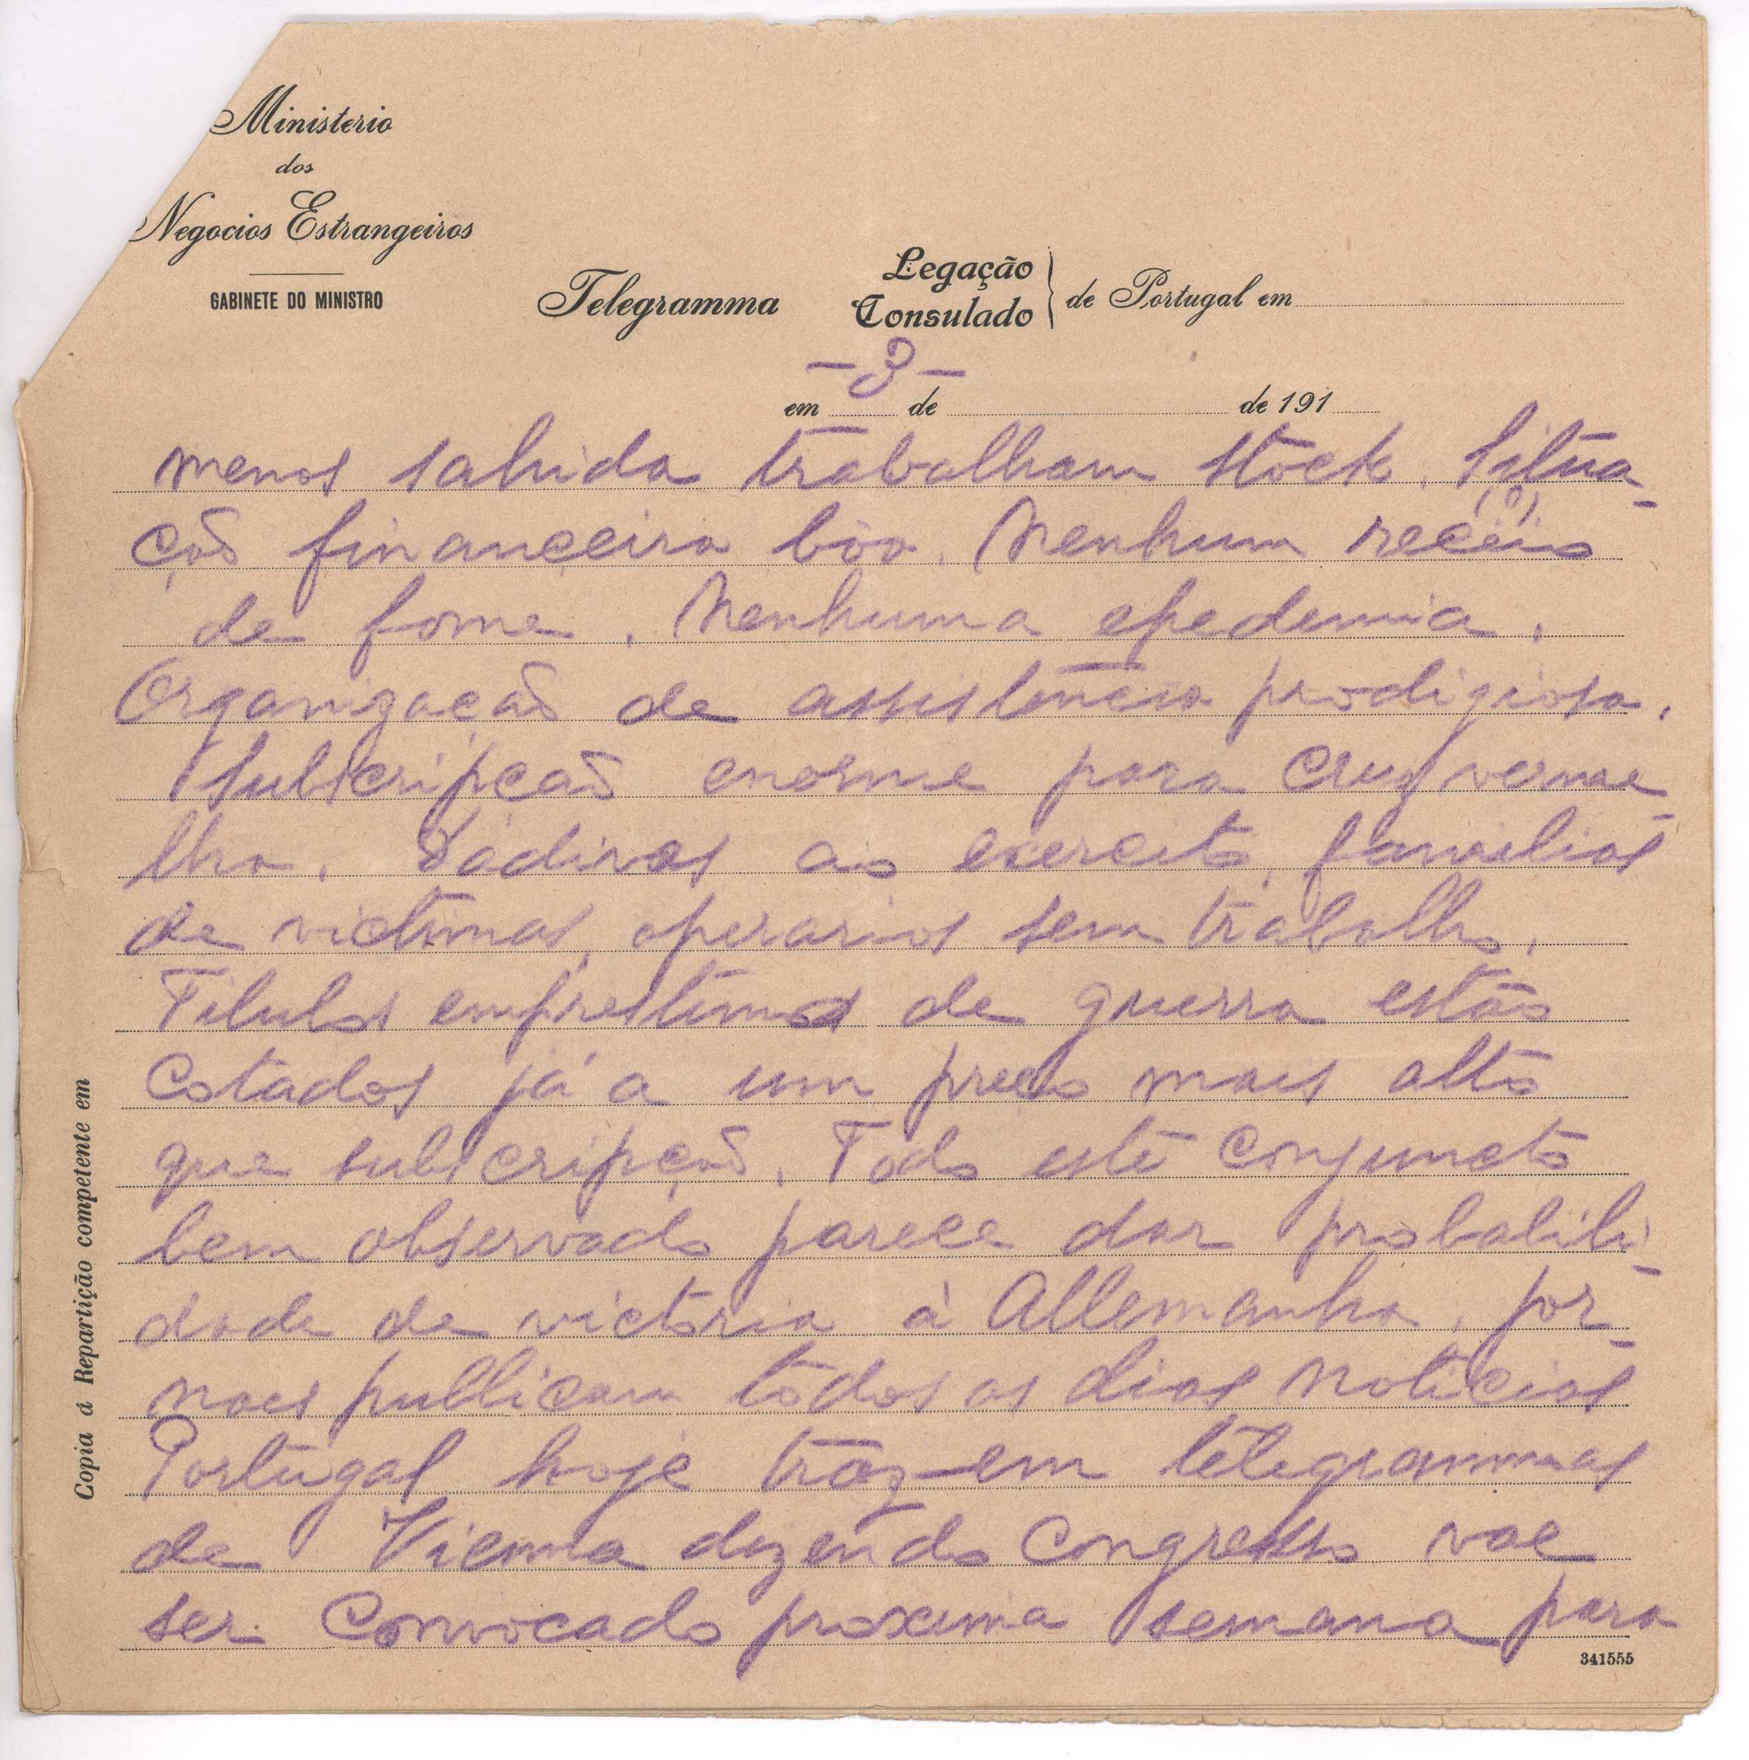 Ministerio
dos
Negocios Estrangeiros
GABINETE DO MINISTRO
Telegramma
Legação
Consulado
de Portugal em
- 3 -
em de de 191
menos sahida trabalham stock. Situa-
ção financeira bôa. Nenhum receio (?)
de fome. Nenhuma epedemia.
Organização de assistencia prodigiosa.
Subscripção enorme para cruz verme-
lha. Dadivas ao exercito, familias
de victimas, operarios sem trabalho.
Titulos emprestimos de guerra estão
cotados já a um preço mais alto
que subscripção. Todo este conjuncto
bem observado parece dar probabili-
dade de victoria á Allemanha, jor-
naes publicam todos os dias noticias
Portugal hoje traz-em telegrammas
de Vienna dizendo Congresso vae
ser convocado proxima semana para
341555
Copia á Repartição competente em